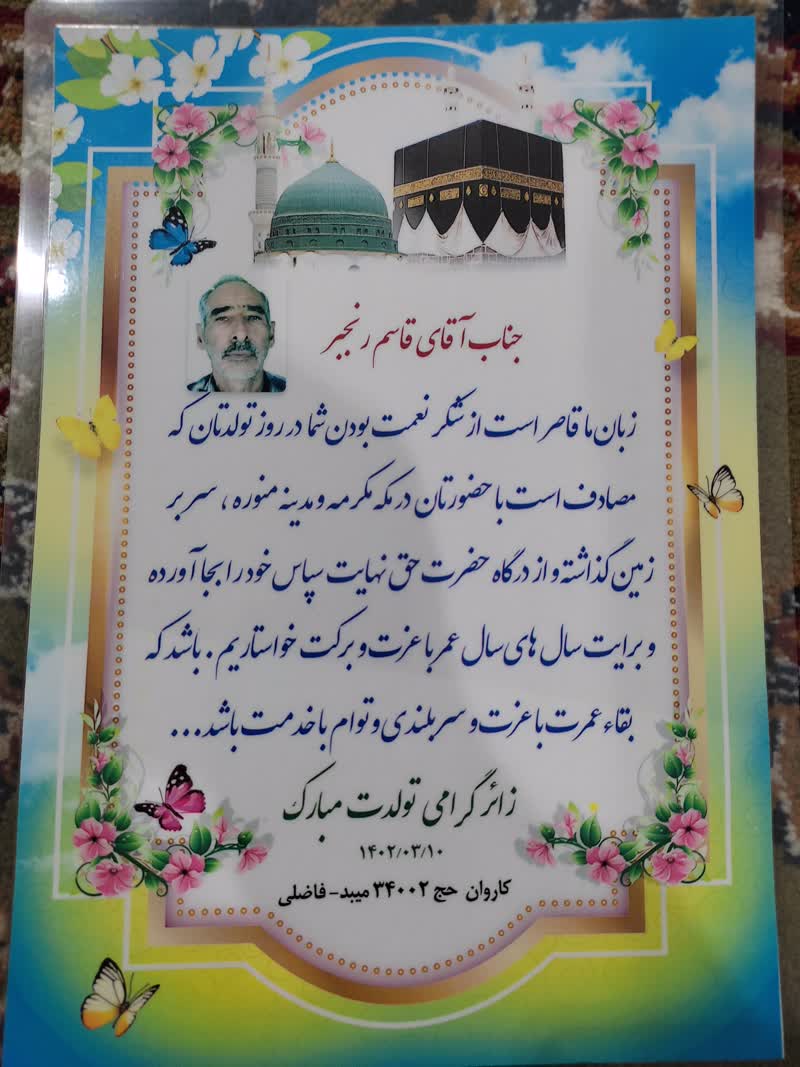 جناب آقای قاسم رنجبر
زبان ما قاصر است از شکر نعمت بودن شما در روز تولدتان که
مصادف است با حضورتان در مکه مکرمه و مدینه منوره ، سر بر
زمین گذاشته و از درگاه حضرت حق نهایت سپاس خود را بجا آورده
و برایت سال های سال عمر با عزت و برکت خواستاریم . باشد که
بقاء عمرت با عزت و سربلندی و توام با خدمت باشد...
زائر گرامی تولدت مبارک
۱۴۰۲/۰۳/۱۰
کاروان حج ۳۴۰۰۲ میبد- فاضلی